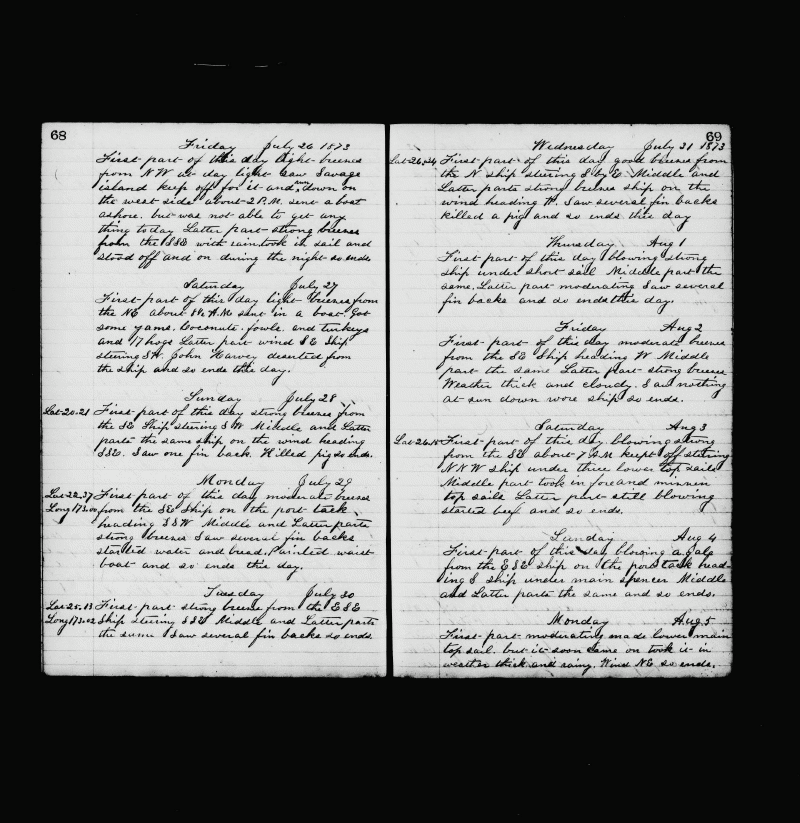 68
Friday July 26 1873
First part of this day light breezes
from N W at day light saw Savage
island keep off for it and run down on
the west side about 2 P.M. sent a boat
ashore. but was not able to get any
thing today Latter part strong breezes
from the SSE with rain took in sail and
stood off and on during the night so ends
Saturday July 27
First part of this day light breezes from
the NE about 8½ A.M sent in a boat Got
some yams. Coconuts. fowls. and turkeys
and 17 hogs Latter part wind SE Ship
steering SW. John Harvey deserted from
the ship and so ends this day.
Sunday July 28
Lat-20-21 First part of this day strong breezes from
the SE Ship steering S W Middle and Latter
parts the same ship on the wind heading
SSE. Saw one fin back. Killed pig so ends.
Monday July 29
Lat-22.37 First part of this day moderate breeze
Long 173.00 from the SE Ship on the port tack
heading SSW Middle and Latter parts
strong breezes Saw several fin backs
started water and bread. Painted waist
boat and so ends this day.
Tuesday July 30
Lat-25.13 First part strong breeze from the ESE
Long 173.02 Ship steering SSE Middle and Latter parts
the same Saw several fin backs so ends.
69
Wednesday July 31 1873
Lat-26-24 First part of this day good breeze from
the N ship steering S by E Middle and
Latter parts strong breeze ship on the
wind heading W. Saw several fin backs
killed a pig and so ends this day
Thursday Aug 1
First part of this day blowing strong
ship under short sail Middle part the
same. Latter part moderating Saw several
fin backs and so ends this day.
Friday Aug 2
First part of this day moderate breeze
from the SE Ship heading W Middle
part the same Latter part strong breeze
Weather thick and cloudy. Saw nothing
at sun down wore ship so ends.
Saturday Aug 3
First part of this day. blowing strong
from the SE about 7 A.M kept off steering
NNW ship under three lower top sails
Middle part took in fore and mizzen
top sails Latter part still blowing
started beef and so ends.
Sunday Aug 4
First part of this day blowing a gale
from the ESE ship on the port tack head-
ing S ship under main spencer Middle
and Latter parts the same and so ends.
Monday Aug 5
First part moderating made lower main
top sail. but it soon came on took it in
weather thick and rainy. Wind NE so ends.